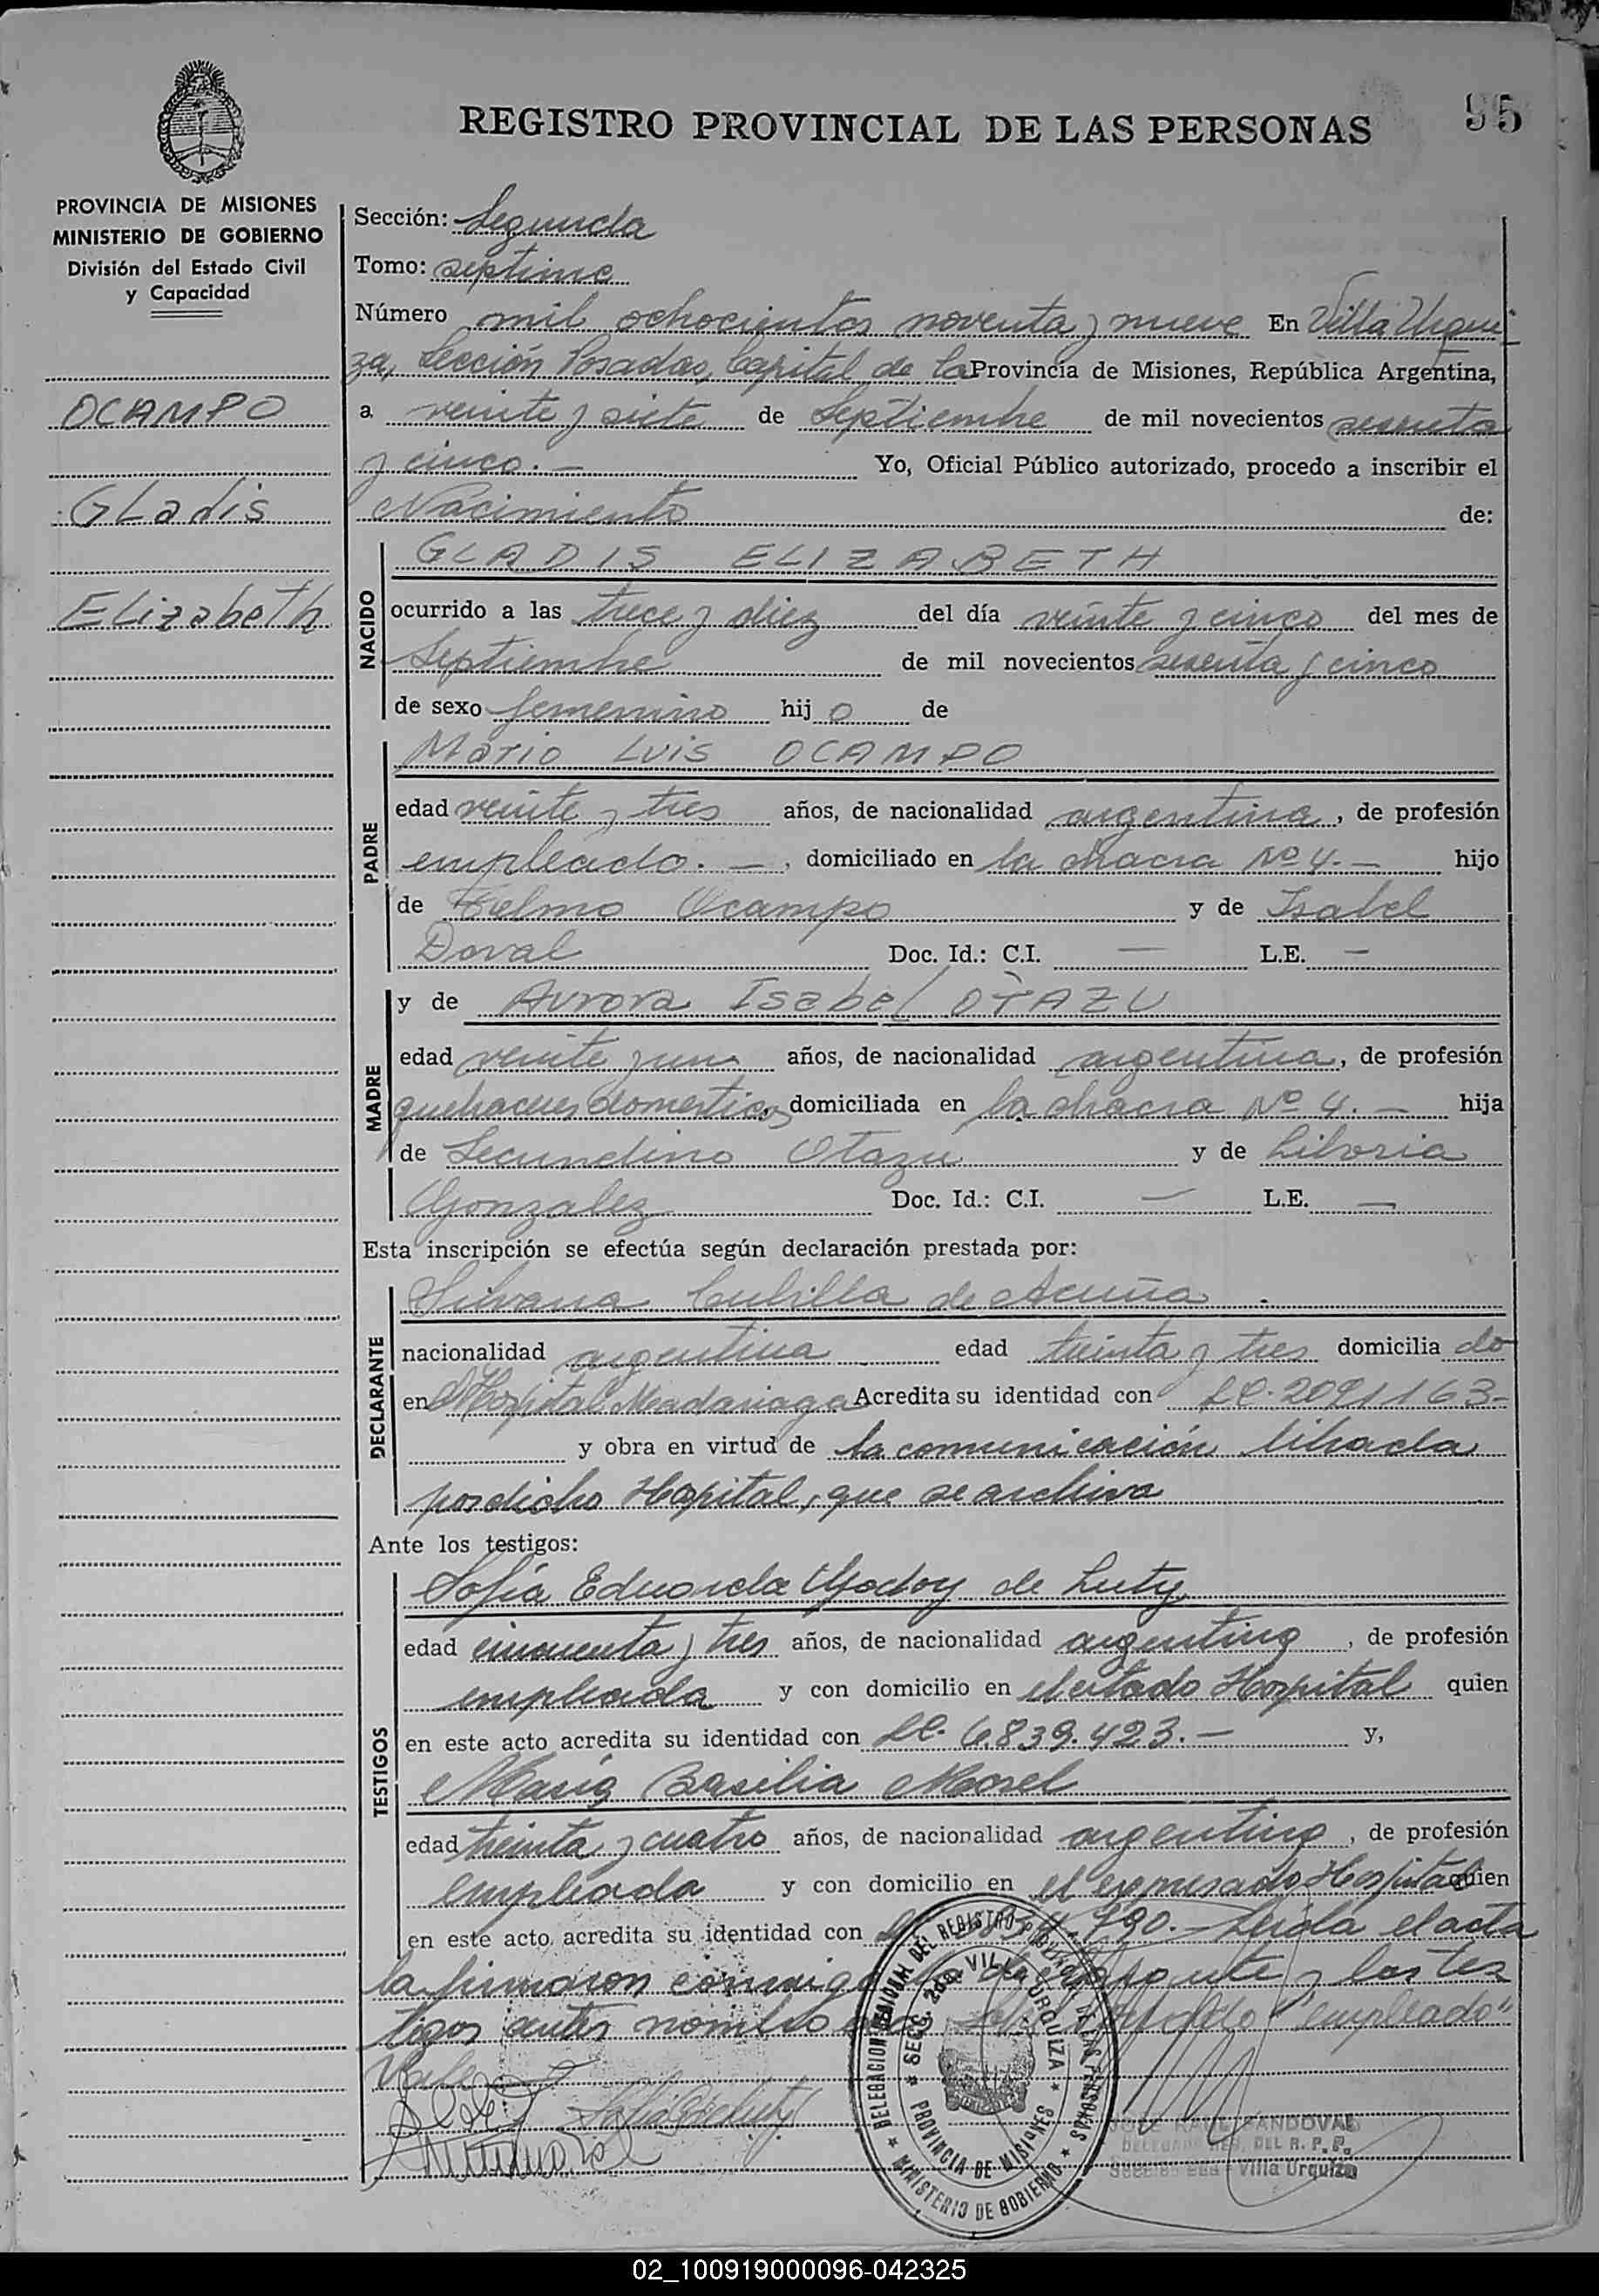 95
REGISTRO PROVINCIAL DE LAS PERSONAS
PROVINCIA DE MISIONES
MINISTERIO DE GOBIERNO
División del Estado Civil
y Capacidad
OCAMPO
Gladis
Elizabeth
Sección: Segunda
Tomo: septimo
Número mil ochocientos noventa y nueve En Villa Urqui-
za, Sección Posadas, Capital de la Provincia de Misiones, República Argentina,
a veinte y siete de Septiembre de mil novecientos sesenta
y cinco. — Yo, Oficial Público autorizado, procedo a inscribir el
Nacimiento de:
NACIDO
GLADIS ELIZABETH
ocurrido a las trece y diez del día veinte y cinco del mes de
Septiembre de mil novecientos sesenta y cinco
de sexo femenino hij o de
PADRE
Mario Luis OCAMPO
edad veinte y tres años, de nacionalidad argentina, de profesión
empleado. —, domiciliado en la chacra Nº 4. — hijo
de Telmo Ocampo y de Isabel
Doval Doc. Id.: C.I. — L.E. —
MADRE
y de Aurora Isabel OTAZU
edad veinte y un años, de nacionalidad argentina, de profesión
quehaceres domesticos domiciliada en la chacra Nº 4. — hija
de Secundino Otazu y de Liboria
Gonzalez Doc. Id.: C.I. — L.E. —
Esta inscripción se efectúa según declaración prestada por:
DECLARANTE
Silvana Cubilla de Acuña
nacionalidad argentina edad treinta y tres domicilia do
en el Hospital Madariaga Acredita su identidad con LC. 2091163-
y obra en virtud de la comunicación librada
por dicho Hospital, que se archiva
Ante los testigos:
TESTIGOS
Sofía Eduarda Godoy de Luty
edad cincuenta y tres años, de nacionalidad argentina, de profesión
empleada y con domicilio en el citado Hospital quien
en este acto acredita su identidad con LC. 6.839.423. — y,
María Basilia Morel
edad treinta y cuatro años, de nacionalidad argentina, de profesión
empleada y con domicilio en el expresado Hospital quien
en este acto acredita su identidad con 790. — Leida el acta
la firmaron conmigo y los tes
tigos antes "empleado"
Vale
DELEGACION REGIONAL DEL REGISTRO PROVINCIAL DE LAS PERSONAS
MINISTERIO DE GOBIERNO
SECC. 2da. VILLA URQUIZA
PROVINCIA DE MISIONES
SANDOVAL
DEL R. P. P.
Villa Urquiza
02_100919000096-042325